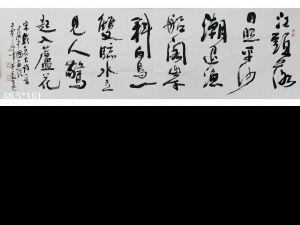 江頭落
日照平沙
潮退漁
船閣岸
斜白鳥一
雙臨水立
見人驚
起入蘆花
48.5*161